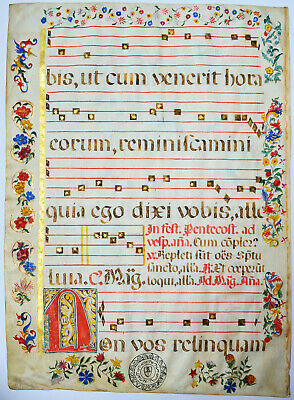 bis, ut cum venerit hora
eorum, reminiscamini
quia ego dixi vobis, alle
In fest. Pentecost. ad
vesp. aña. Cum cōple?
luia. C. Mag̃.
℣. Repleti sūt oēs Sp̃tu
sancto, alla. ℟. Et cœperūt
loqui, alla. Ad Mag̃. Aña.
Non vos relinquam